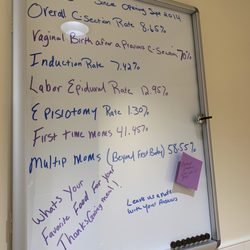 Since Opening Sept 2014
Overall C-Section Rate 8.65%
Vaginal Birth after a Previous C-Section 70%
Induction Rate 7.42%
Labor Epidural Rate 12.95%
Episiotomy Rate 1.30%
First time moms 41.45%
Multip Moms (Beyond First Baby) 58.55%
What's Your
Favorite Food For your
Thanksgiving meal?!
Leave us a note
with your Answers